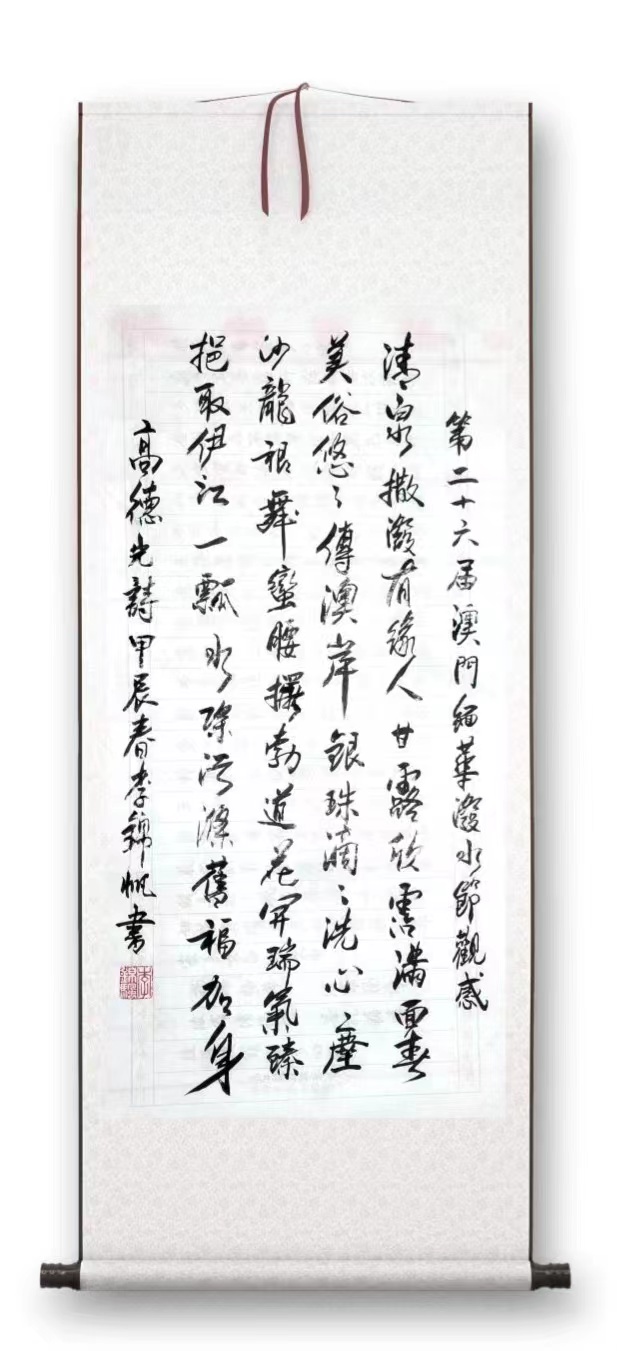 第二十六届澳門緬華潑水節觀感
清泉撒潑有緣人甘露欣霑滿面春
美俗悠々傳澳岸銀珠滴々洗心塵
沙龍裙舞蠻腰擺勃道花開瑞氣臻
挹取伊江一瓢水除污滌舊福加身
高德光詩甲辰春李錦帆書